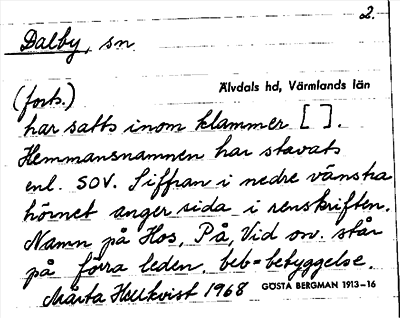 2.
Dalby, sn
Älvdals hd, Värmlands län
(forts.)
har satts inom klammer [ ].
Hemmansnamnen har stavats
enl. SOV. Siffran i nedre vänstra
hörnet anger sida i renskriften.
Namn på Hos, På, Vid osv. står
på förra leden. beb = bebyggelse.
Märta Hallkvist 1968 GÖSTA BERGMAN 1913-16